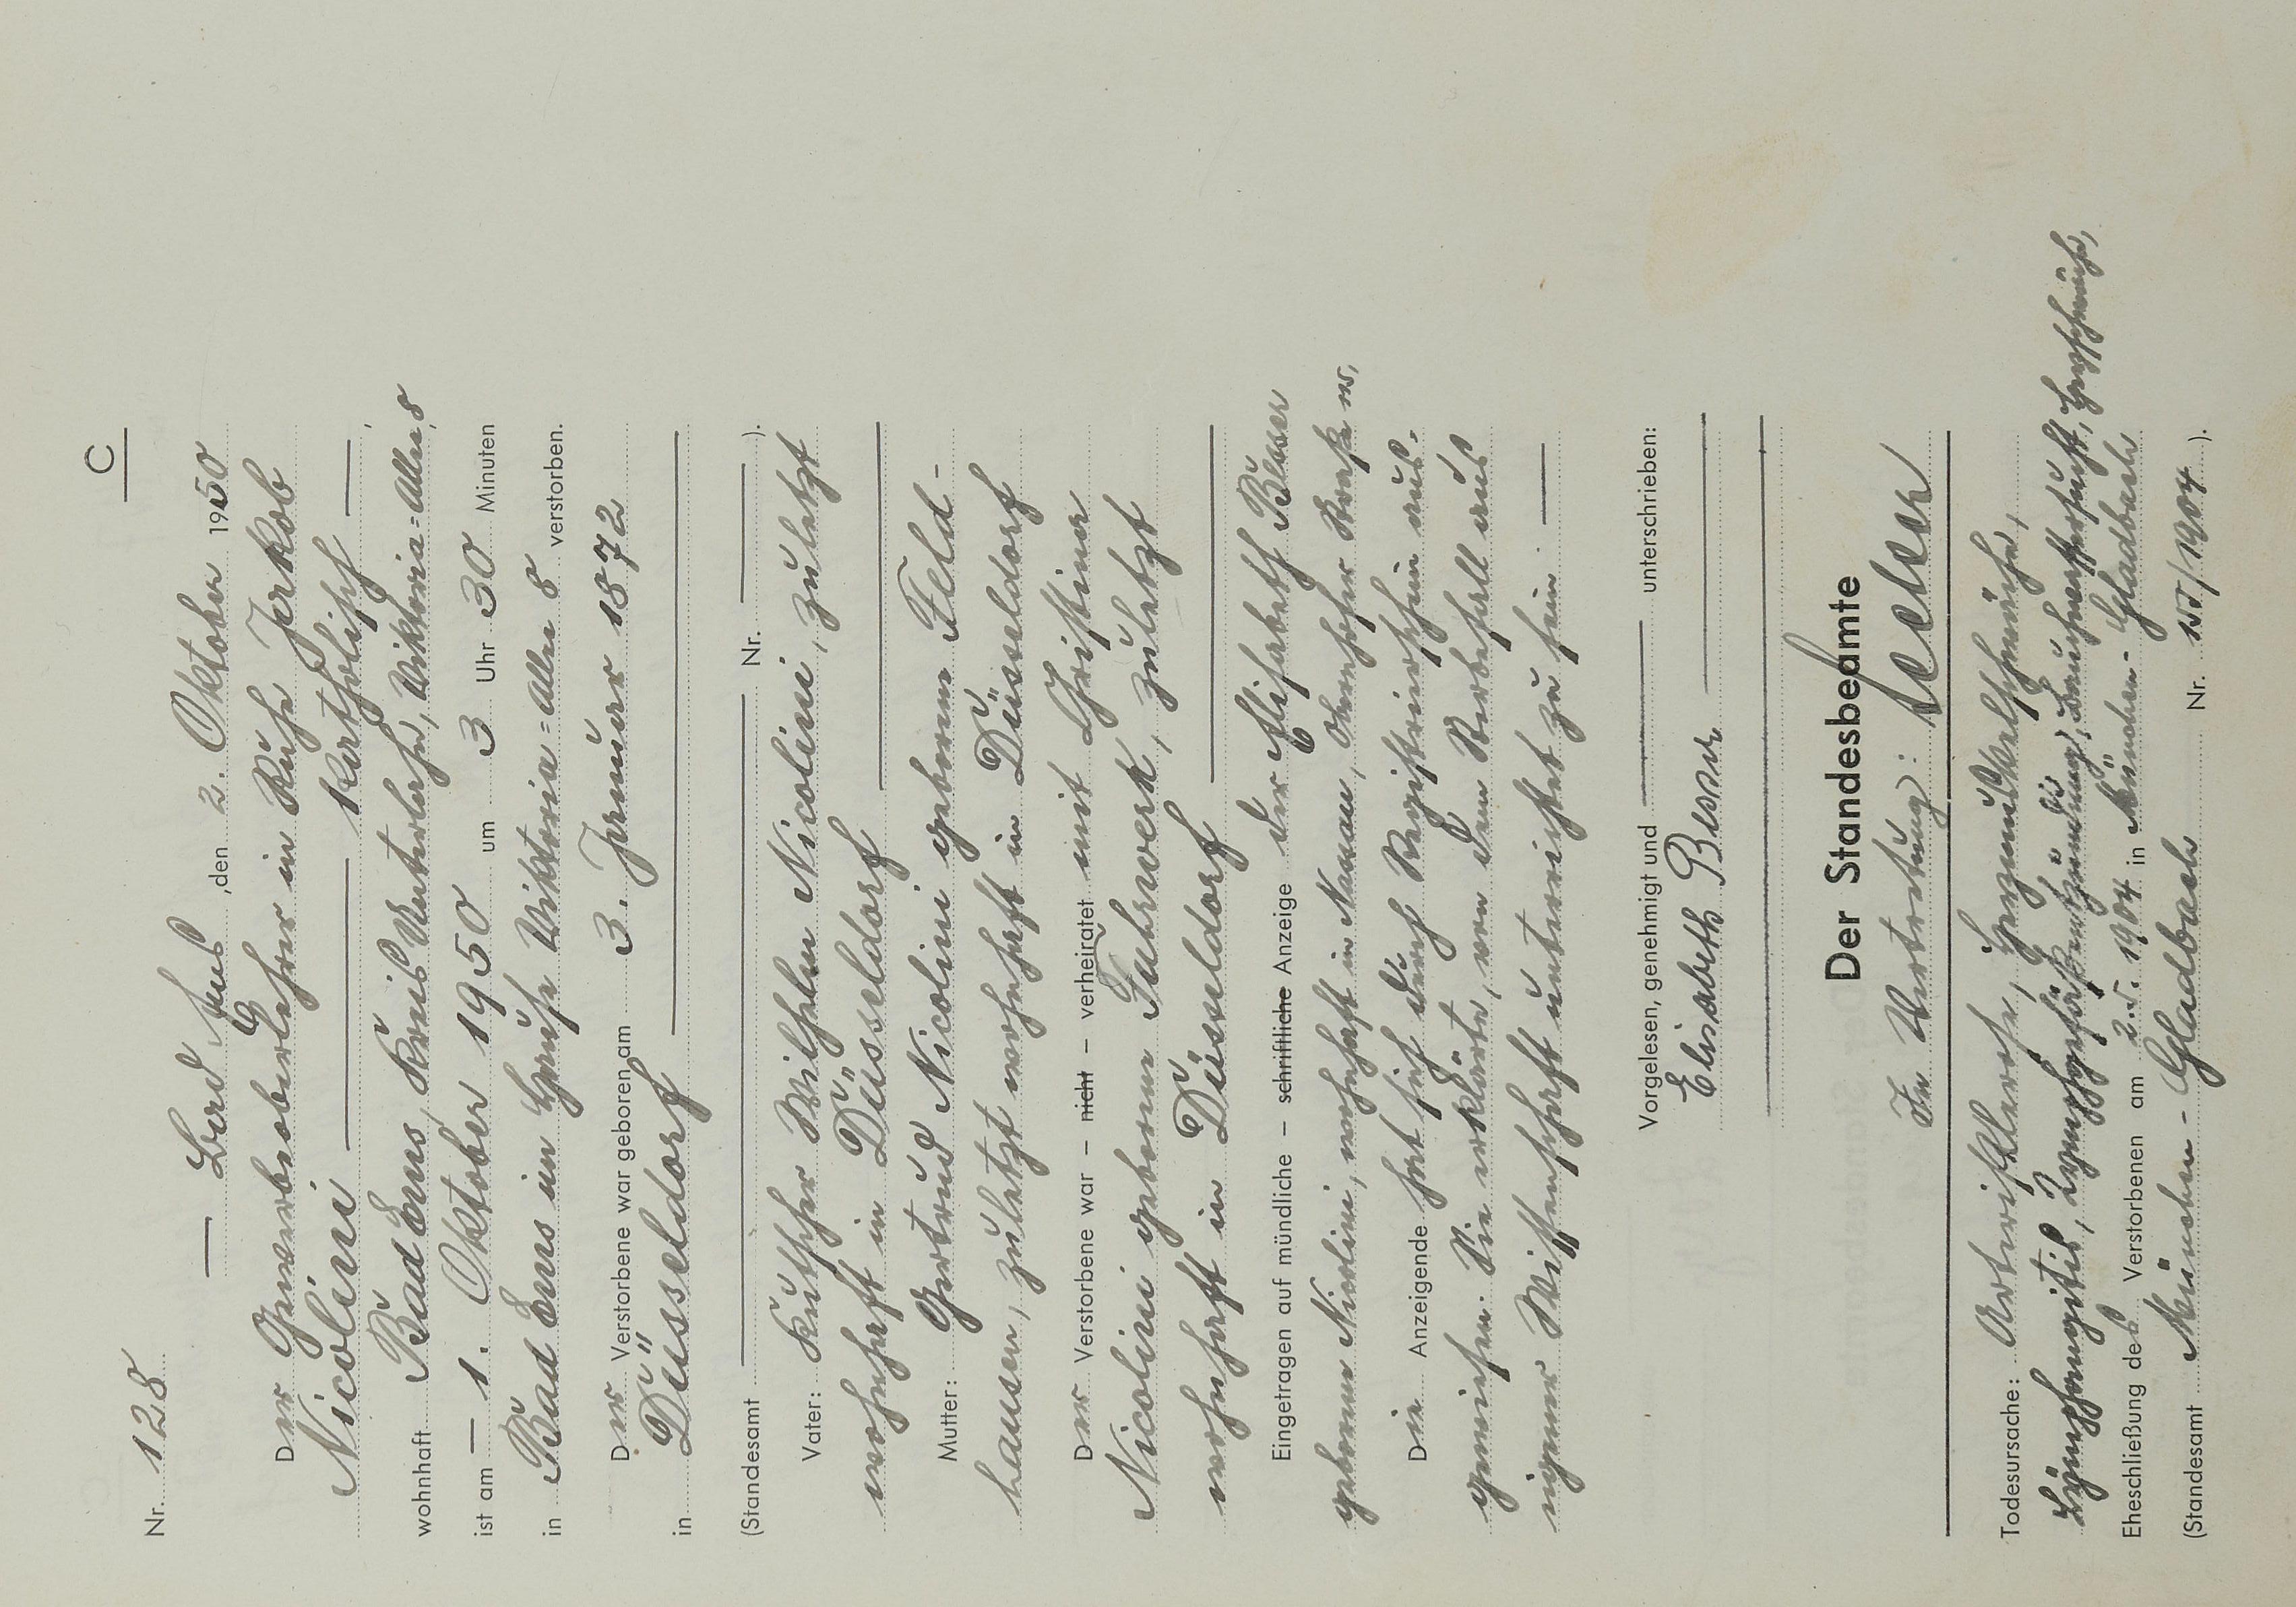 C
Nr. 128
— Bad Ems, den 2. Oktober 1950
Der Gewerbeoberlehrer in Ruhe Jakob
Nicolini — katholisch —,
wohnhaft Bad Ems, Kreis Unterlahn, Viktoria=Allee, 8
ist am — 1. Oktober 1950 um 3 Uhr 30 Minuten
in Bad Ems im Hause Viktoria=Allee 8 verstorben.
Der Verstorbene war geboren am 3. Januar 1872
in Düsseldorf
(Standesamt — Nr. — ).
Vater: Küther Wilhelm Nicolini, zuletzt
wohnhaft in Düsseldorf
Mutter: Gertrud Nicolini geborene Feld-
hausen, zuletzt wohnhaft in Düsseldorf
Der Verstorbene war – nicht – verheiratet mit Christine
Nicolini geborene Fuhrwerk, zuletzt
wohnhaft in Düsseldorf
Eingetragen auf mündliche – schriftliche Anzeige der Elisabeth Besser
geborene Nicolini, wohnhaft in Nassau,
Die Anzeigende hat sich durch Registrierschein aus-
gewiesen. Sie erklärte, von dem Sterbefall aus
eigener Wissenschaft unterrichtet zu sein. —
Vorgelesen, genehmigt und — unterschrieben:
Elisabeth Besser
Der Standesbeamte
In Vertretung:
Todesursache: Arteriosklerose, Herzmuskelschwäche,
Lymphangitis, Lymphgefäßentzündung, Bauchwassersucht, Herzschwäche,
Eheschließung des Verstorbenen am 2.5. 1904 in München-Gladbach
(Standesamt München-Gladbach Nr. 155/1904 ).